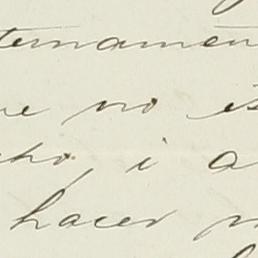 ternamen
ue no es
cho, i a
hacer